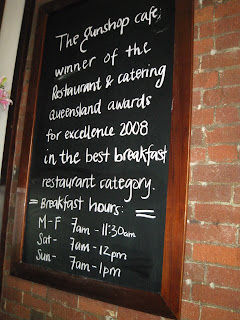 The Gunshop Cafe;
winner of the
Restaurant & catering
queensland awards
for excellence 2008
in the best breakfast
restaurant category.
= Breakfast hours: =
M-F 7am - 11:30am
Sat- 7am - 12pm
Sun- 7am - 1pm